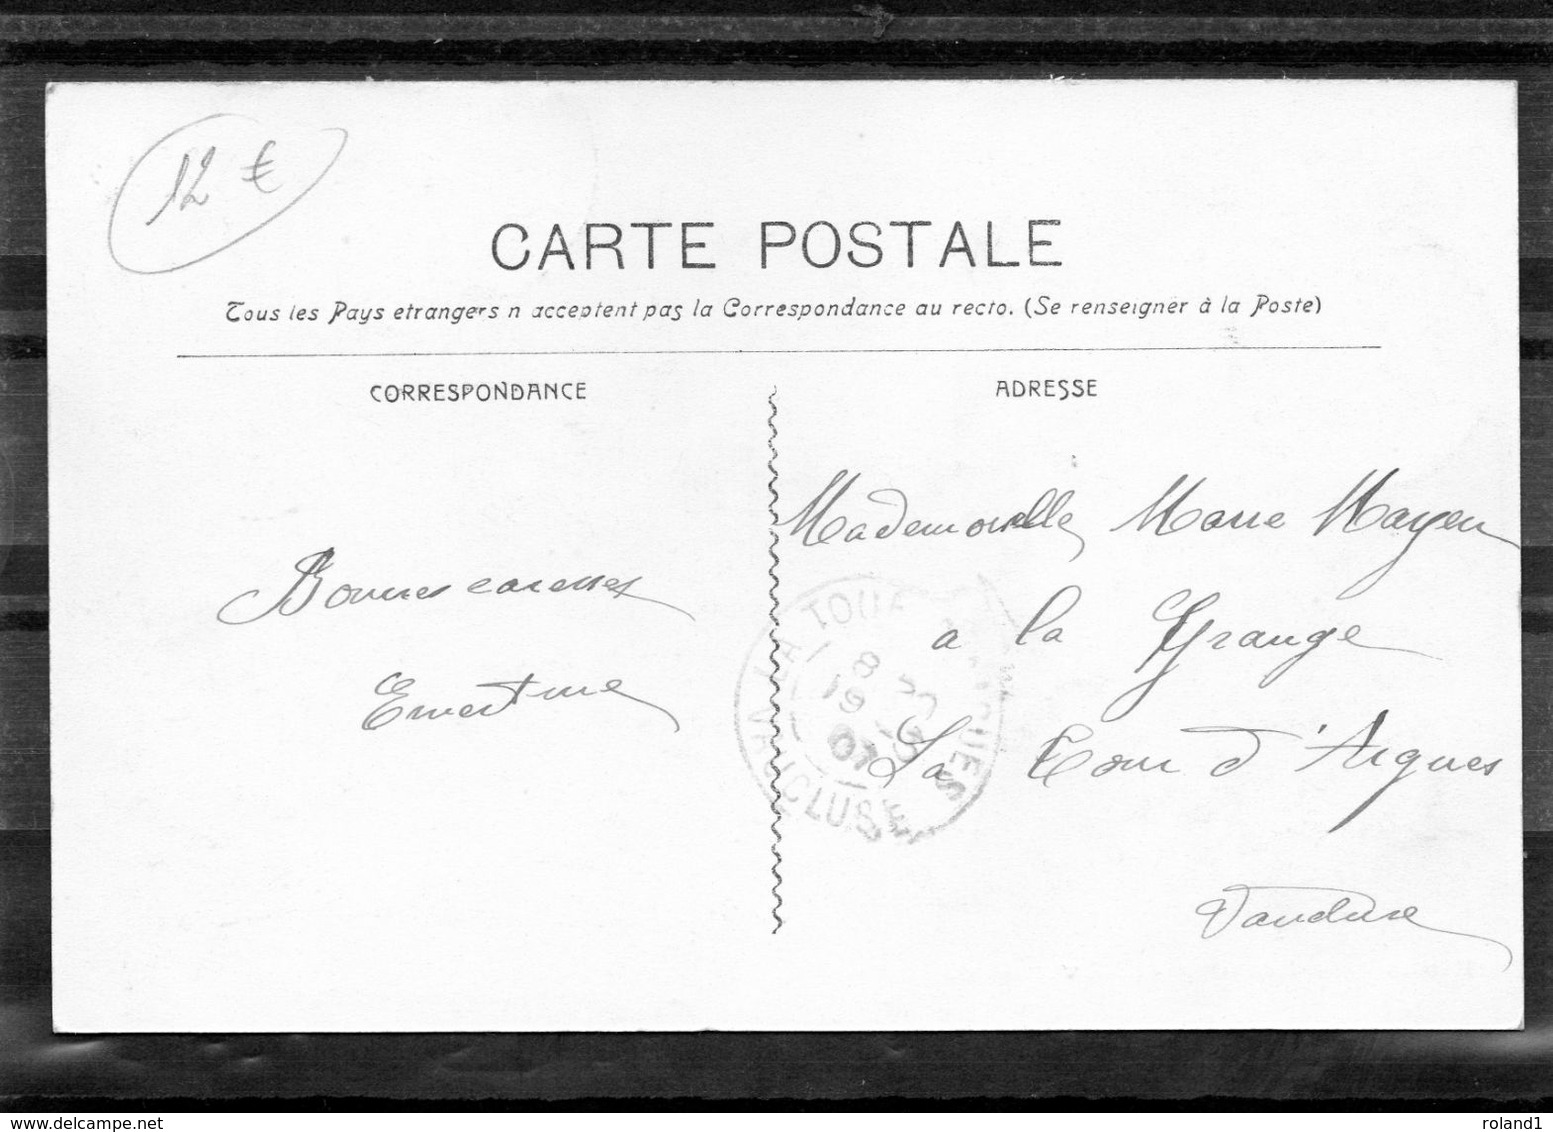 12 €
CARTE POSTALE
Tous les Pays etrangers n acceptent pas la Correspondance au recto. (Se renseigner à la Poste)
CORRESPONDANCE
ADRESSE
Bonnes caresses
Ernestine
Mademoiselle Marie Mayen
a la Grange
La Tour d'Aigues
Vaucluse
LA TOUR
VAUCLUSE
www.delcampe.net
roland1